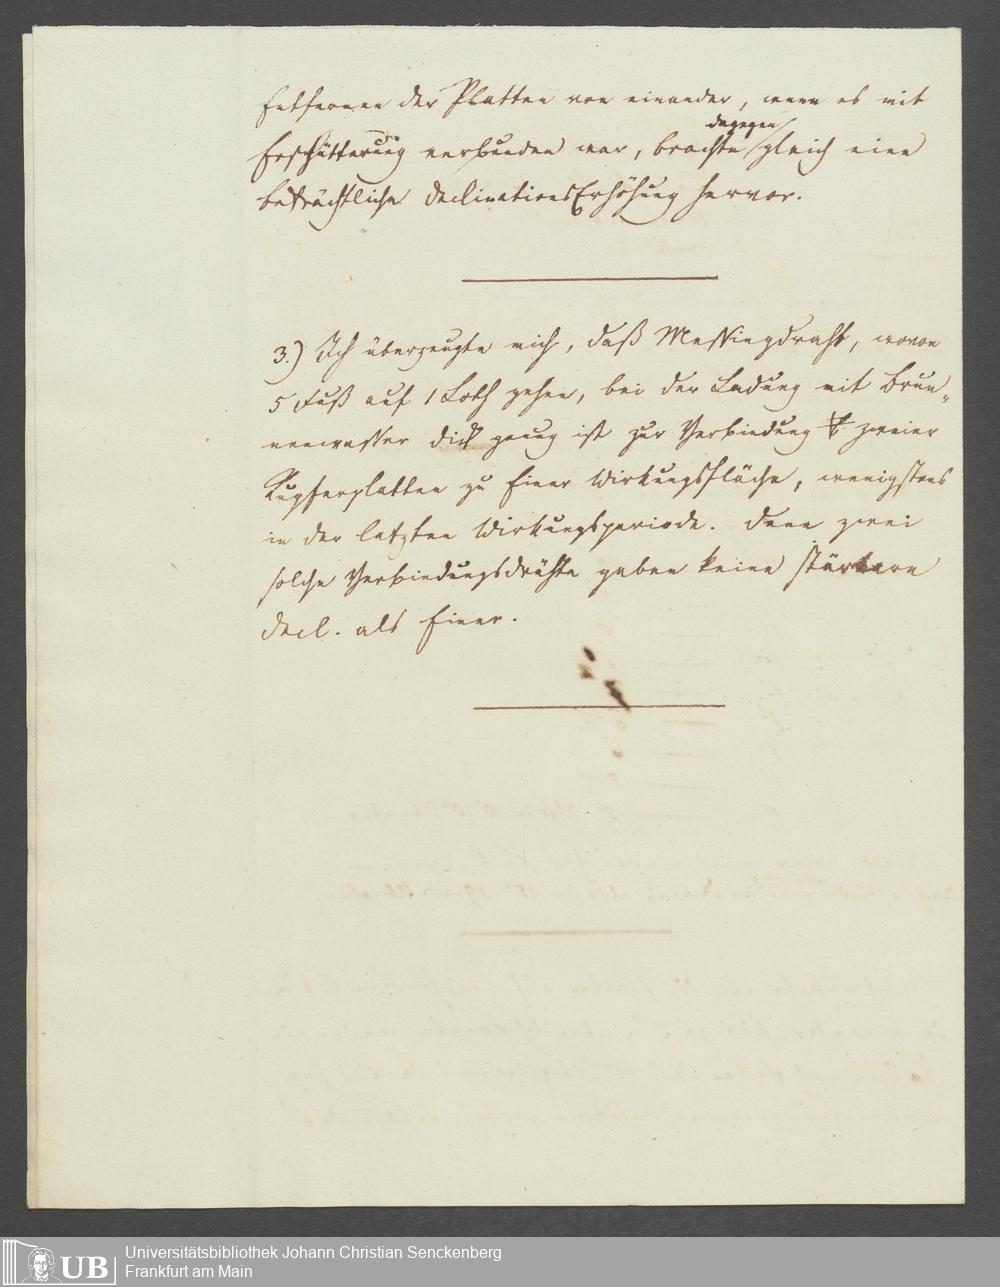 Entfernen der Platten von einander, wenn es mit
dagegen
Erschütterung verbunden war, brachte gleich eine
beträchtliche DeclinationsErhöhung hervor.
3.) Ich überzeugte mich, daß Messingdraht, wovon
5 Fuß auf 1 Loth gehen, bei der Ladung mit Brun„
nenwasser dick genug ist zur Verbindung zweier
Kupferplatten zu Einer Wirkungsfläche, wenigstens
in der letzten Wirkungsperiode. Denn zwei
solche Verbindungsdrähte gaben keine stärkere
Decl. als Einer.
UB
Universitätsbibliothek Johann Christian Senckenberg
Frankfurt am Main